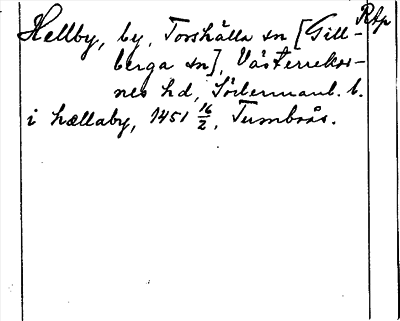 Rtp
Hellby, by, Torshälla sn [Gill-
berga sn], Västerrekar-
nes hd, Södermanl. l.
i hællaby, 1451 16/2, Tumboås.